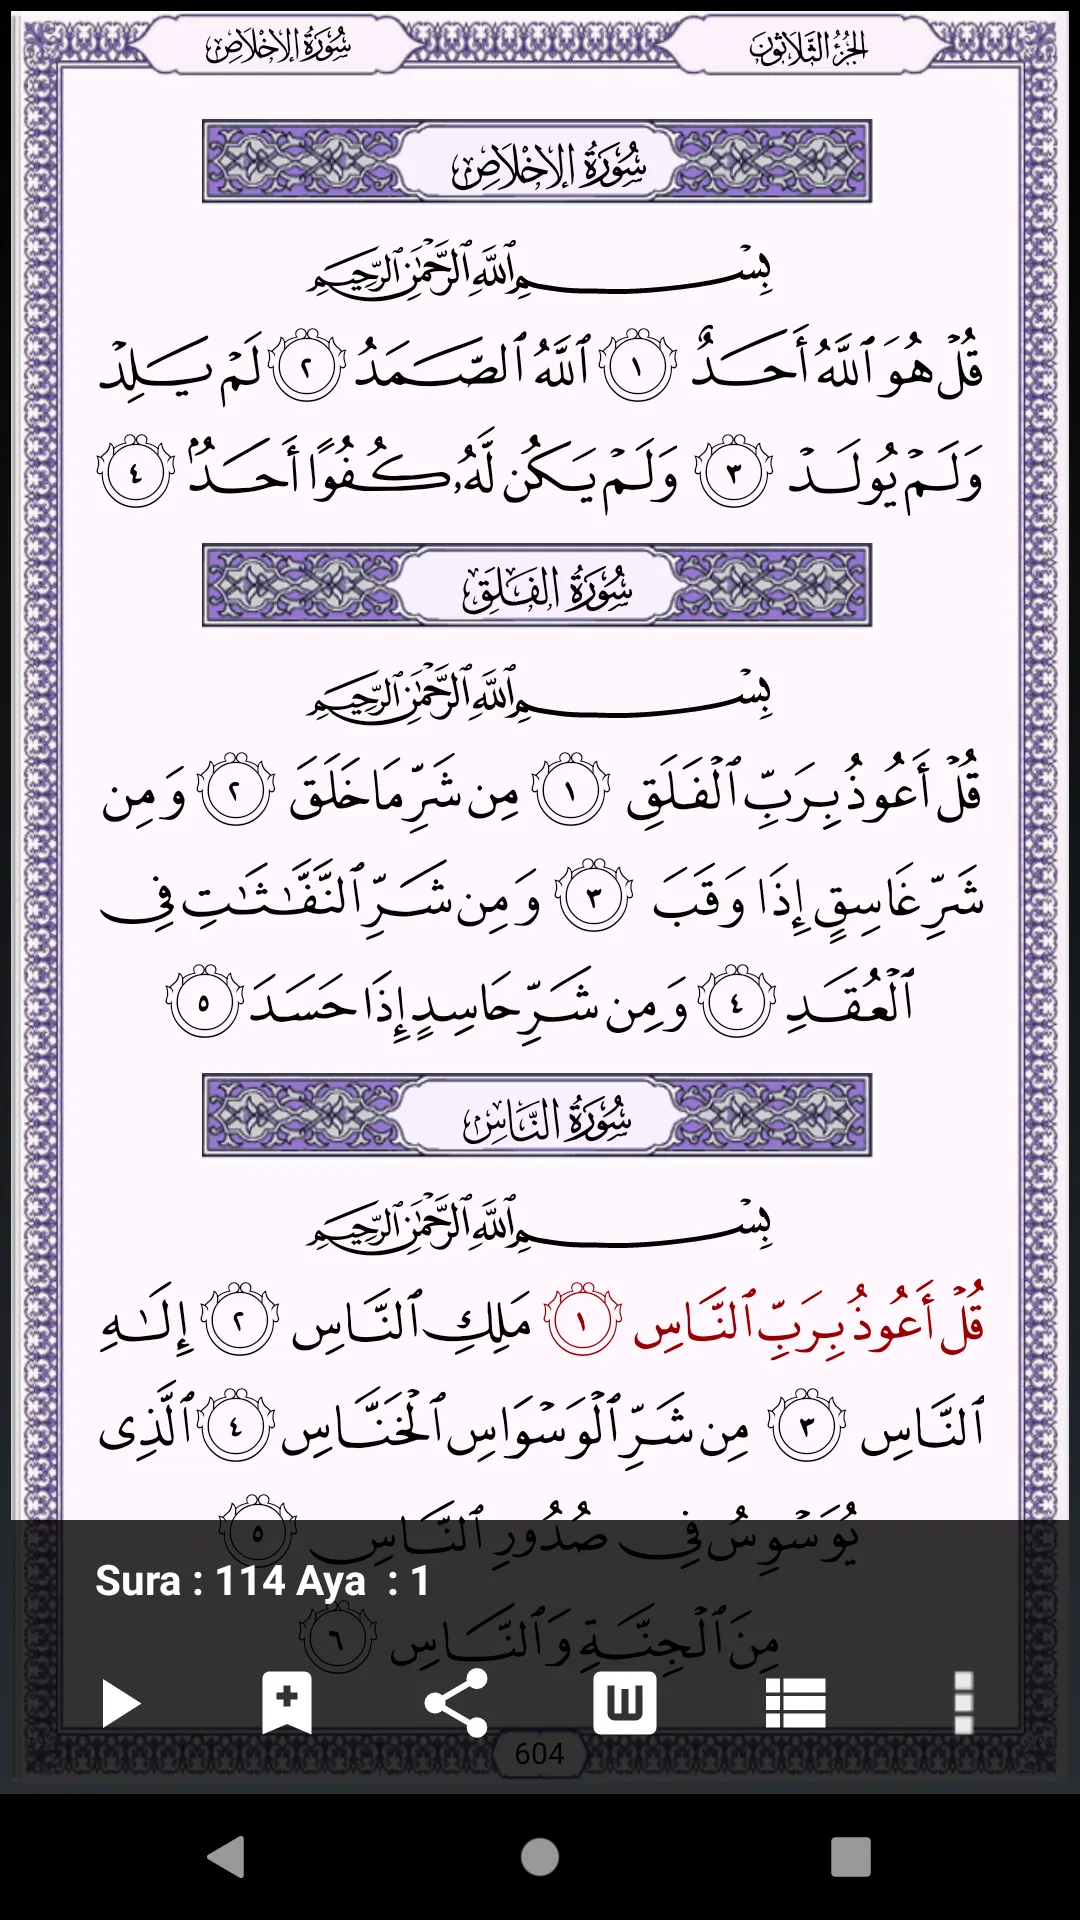 الجُزْءُ الثَّلَاثُونَ
سُورَةُ الإِخْلَاصِ
سُورَةُ الإِخْلَاصِ
بِسْمِ ٱللَّهِ ٱلرَّحْمَٰنِ ٱلرَّحِيمِ
قُلْ هُوَ ٱللَّهُ أَحَدٌ ١ ٱللَّهُ ٱلصَّمَدُ ٢ لَمْ يَلِدْ
وَلَمْ يُولَدْ ٣ وَلَمْ يَكُن لَّهُۥ كُفُوًا أَحَدٌۢ ٤
سُورَةُ الفَلَقِ
بِسْمِ ٱللَّهِ ٱلرَّحْمَٰنِ ٱلرَّحِيمِ
قُلْ أَعُوذُ بِرَبِّ ٱلْفَلَقِ ١ مِن شَرِّ مَا خَلَقَ ٢ وَمِن
شَرِّ غَاسِقٍ إِذَا وَقَبَ ٣ وَمِن شَرِّ ٱلنَّفَّٰثَٰتِ فِى
ٱلْعُقَدِ ٤ وَمِن شَرِّ حَاسِدٍ إِذَا حَسَدَ ٥
سُورَةُ النَّاسِ
بِسْمِ ٱللَّهِ ٱلرَّحْمَٰنِ ٱلرَّحِيمِ
قُلْ أَعُوذُ بِرَبِّ ٱلنَّاسِ ١ مَلِكِ ٱلنَّاسِ ٢ إِلَٰهِ
ٱلنَّاسِ ٣ مِن شَرِّ ٱلْوَسْوَاسِ ٱلْخَنَّاسِ ٤ ٱلَّذِى
يُوَسْوِسُ فِى صُدُورِ ٱلنَّاسِ ٥
Sura : 114 Aya : 1
مِنَ ٱلْجِنَّةِ وَٱلنَّاسِ ٦
W
604